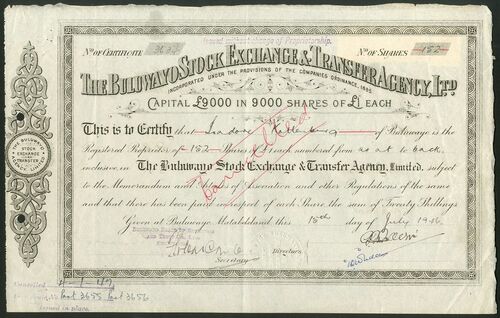 Issued without change of Proprietorship.
No. OF CERTIFICATE
No. OF SHARES 152
THE BULUWAYO STOCK EXCHANGE & TRANSFER AGENCY, LTD
INCORPORATED UNDER THE PROVISIONS OF THE COMPANIES ORDINANCE, 1895.
CAPITAL £9000 IN 9000 SHARES OF £1 EACH
This is to Certify that Isadore of Buluwayo is the
Registered Proprietor of 152 Shares of £1 each numbered from as at to back
inclusive in The Buluwayo Stock Exchange & Transfer Agency, Limited, subject
to the Memorandum and Articles of Association and other Regulations of the same
and that there has been paid in respect of each Share the sum of Twenty Shillings
Given at Buluwayo Matabeleland this 15th day of July
Cancelled
Secretary
Directors
THE BULUWAYO STOCK EXCHANGE & TRANSFER AGENCY LIMITED
Cancelled 4-1-42
Cert 3655 Cert 3656
issued in place